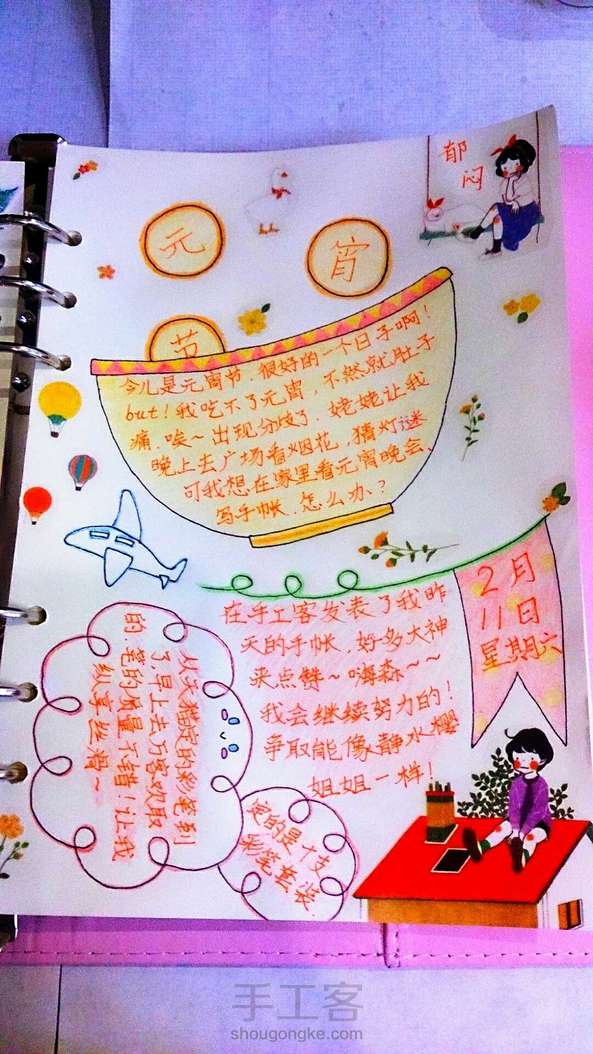 郁
闷
元
宵
节
今儿是元宵节.很好的一个日子啊!
but!我吃不了元宵,不然就肚子
痛.唉~出现分歧了.姥姥让我
晚上去广场看烟花,猜灯谜
可我想在家里看元宵晚会、
写手帐.怎么办?
2月
11日
星期六
在手工客发表了我昨
天的手帐.好多大神
来点赞~嗨森~~
我会继续努力的!
争取能像静水樱
姐姐一样!
从天猫淀的彩笔到
了早上去万客欢取
的 笔的质量不错!让我
纵享丝滑~
淀的是个支
彩笔套装.
手工客
shougongke.com